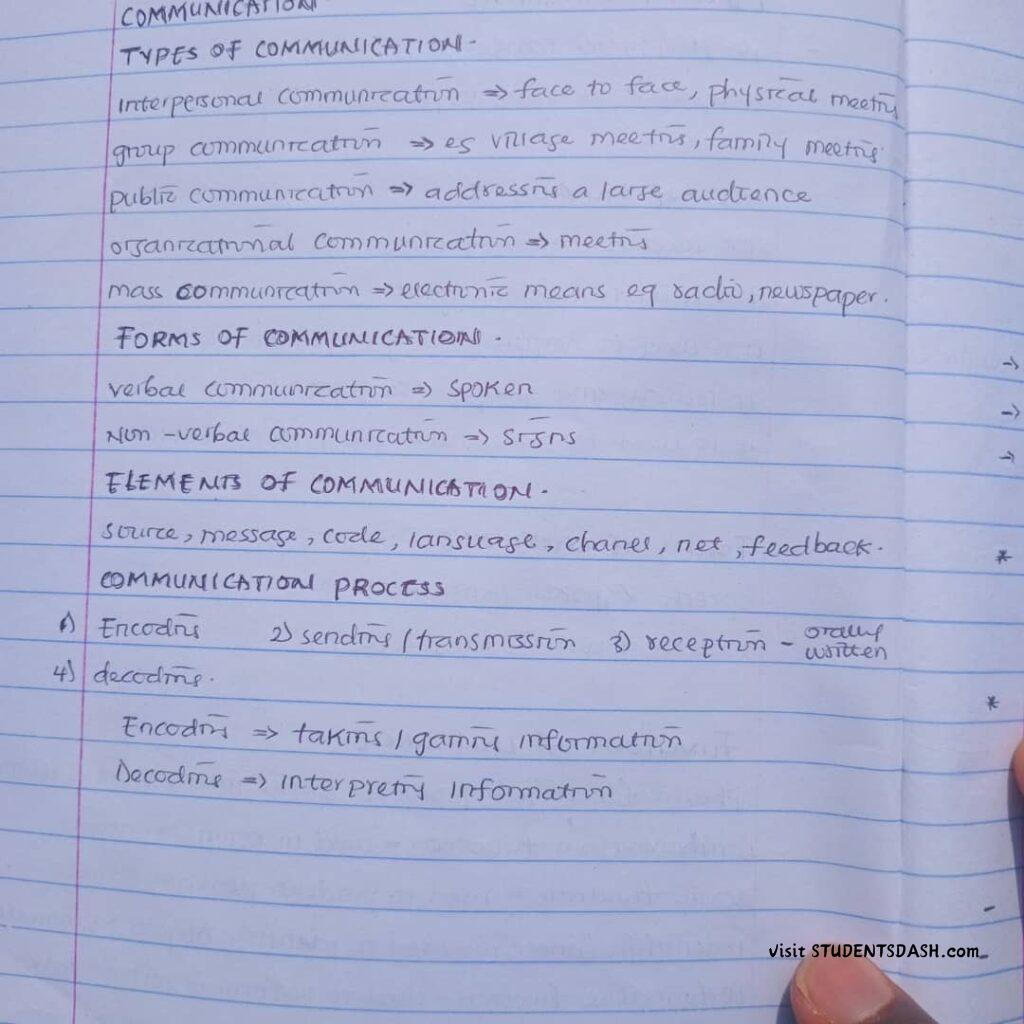 COMMUNICATION
TYPES OF COMMUNICATION.
interpersonal communication => face to face, physical meeting
group communication => eg village meetings, family meetings
public communication => addressing a large audience
organizational communication => meetings
mass communication => electronic means eg radio, newspaper.
FORMS OF COMMUNICATION.
verbal communication => spoken
Non-verbal communication => signs
ELEMENTS OF COMMUNICATION.
source, message, code, language, chanel, net, feedback.
COMMUNICATION PROCESS
1) Encoding 2) sending / transmission 3) reception - orally written
4) decoding.
Encoding => taking / gaining information
Decoding => interpreting information
visit STUDENTSDASH.com